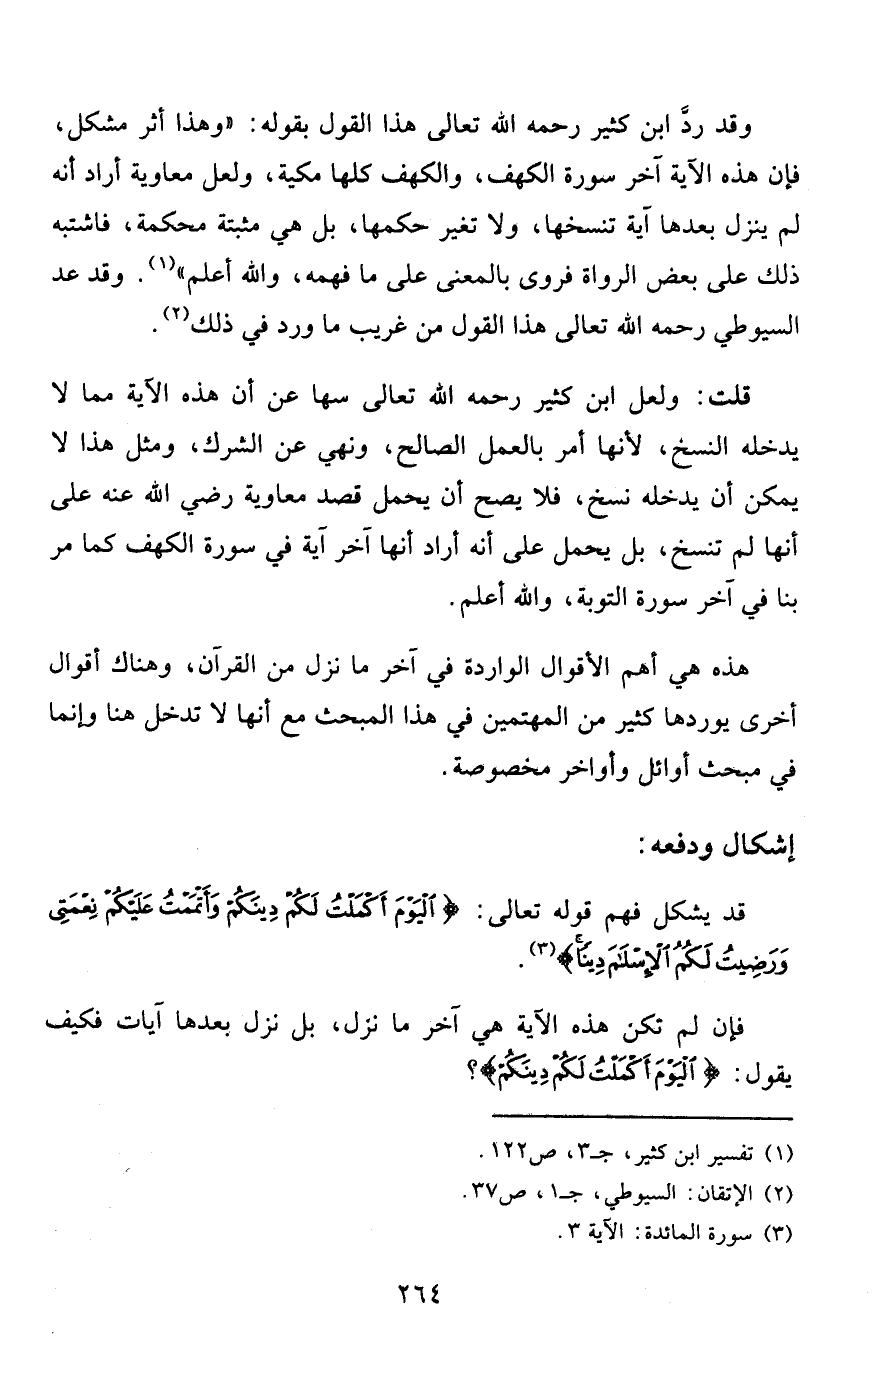 وقد ردَّ ابن كثير رحمه الله تعالى هذا القول بقوله: «وهذا أثر مشكل،
فإن هذه الآية آخر سورة الكهف، والكهف كلها مكية، ولعل معاوية أراد أنه
لم ينزل بعدها آية تنسخها، ولا تغير حكمها، بل هي مثبتة محكمة، فاشتبه
ذلك على بعض الرواة فروى بالمعنى على ما فهمه، والله أعلم»(١). وقد عد
السيوطي رحمه الله تعالى هذا القول من غريب ما ورد في ذلك(٢).
قلت: ولعل ابن كثير رحمه الله تعالى سها عن أن هذه الآية مما لا
يدخله النسخ، لأنها أمر بالعمل الصالح، ونهي عن الشرك، ومثل هذا لا
يمكن أن يدخله نسخ، فلا يصح أن يحمل قصد معاوية رضي الله عنه على
أنها لم تنسخ، بل يحمل على أنه أراد أنها آخر آية في سورة الكهف كما مر
بنا في آخر سورة التوبة، والله أعلم.
هذه هي أهم الأقوال الواردة في آخر ما نزل من القرآن، وهناك أقوال
أخرى يوردها كثير من المهتمين في هذا المبحث مع أنها لا تدخل هنا وإنما
في مبحث أوائل وأواخر مخصوصة.
إشكال ودفعه:
قد يشكل فهم قوله تعالى: ﴿ٱلْيَوْمَ أَكْمَلْتُ لَكُمْ دِينَكُمْ وَأَتْمَمْتُ عَلَيْكُمْ نِعْمَتِى
وَرَضِيتُ لَكُمُ ٱلْإِسْلَٰمَ دِينًۭا ۚ﴾(٣).
فإن لم تكن هذه الآية هي آخر ما نزل، بل نزل بعدها آيات فكيف
يقول: ﴿ٱلْيَوْمَ أَكْمَلْتُ لَكُمْ دِينَكُمْ﴾؟
(١) تفسير ابن كثير، جـ٣، ص١٢٢.
(٢) الإتقان: السيوطي، جـ١، ص٣٧.
(٣) سورة المائدة: الآية ٣.
٢٦٤